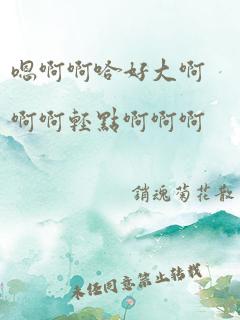 嗯啊啊哈好大啊
啊啊轻點啊啊啊
銷魂菊花散
未任同意禁止转载